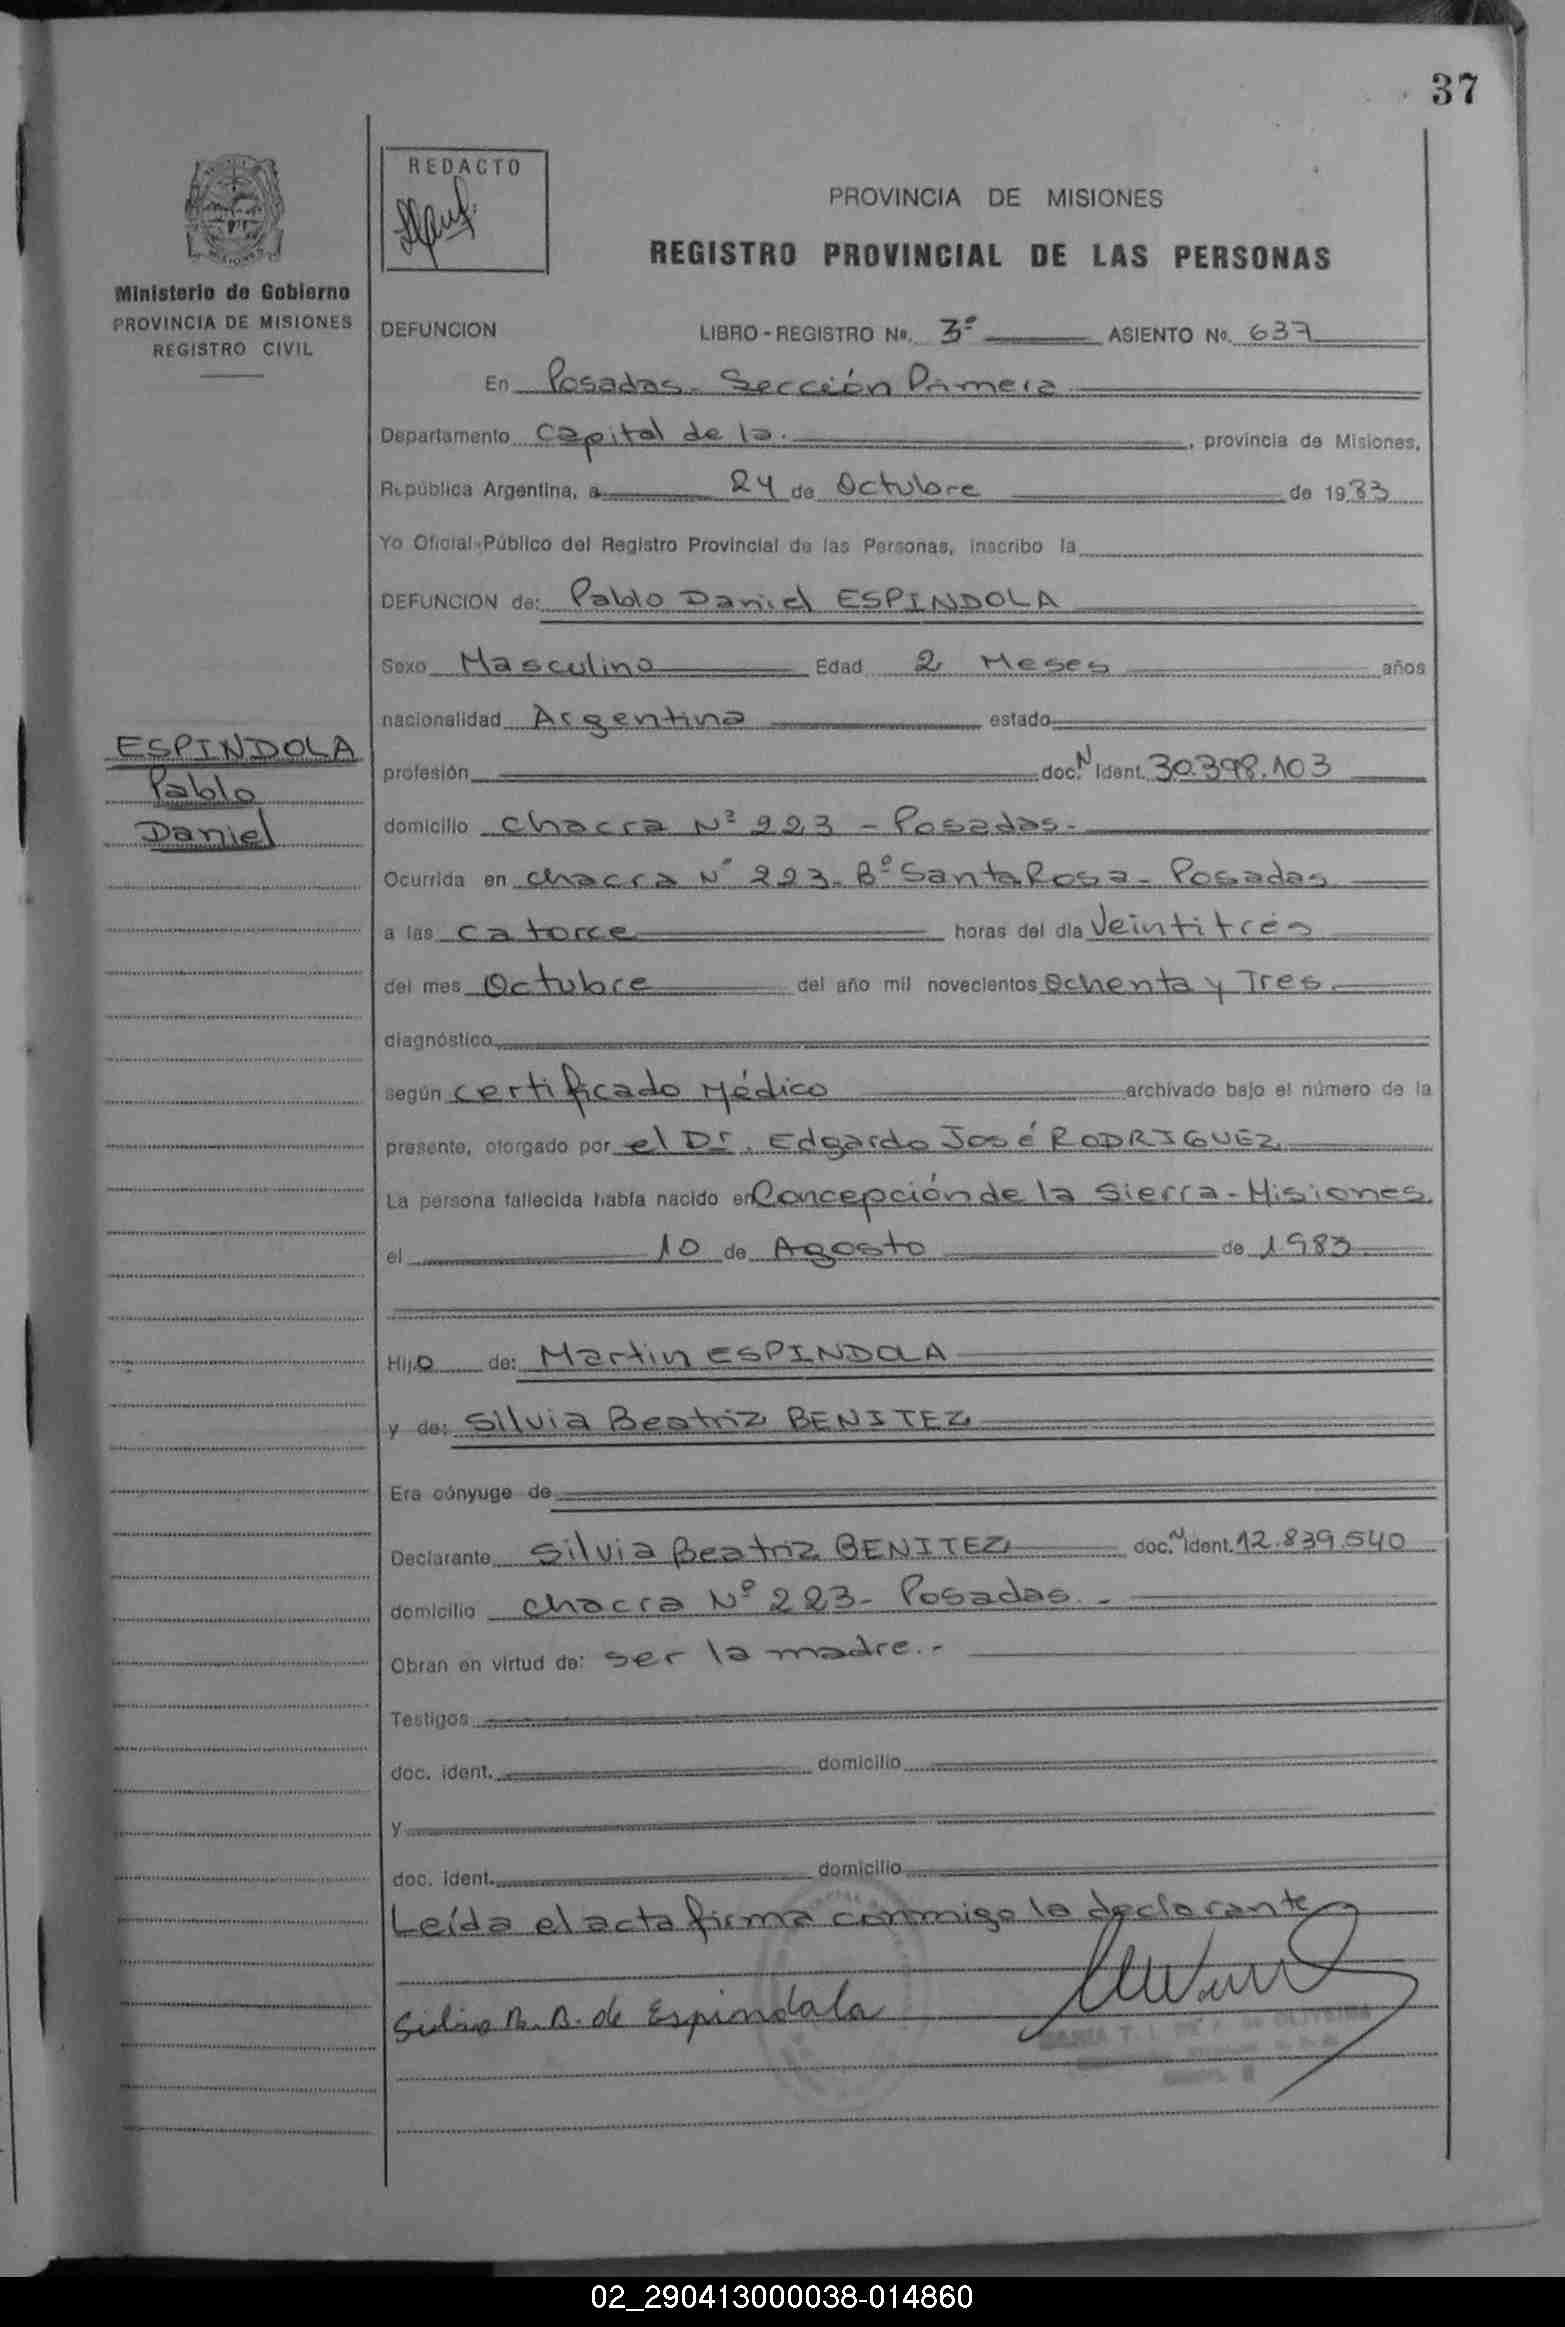 37
REDACTO
PROVINCIA DE MISIONES
REGISTRO PROVINCIAL DE LAS PERSONAS
Ministerio de Gobierno
PROVINCIA DE MISIONES
REGISTRO CIVIL
DEFUNCION LIBRO - REGISTRO No. 3º ASIENTO No. 637
En Posadas - Sección Primera
Departamento Capital de la. , provincia de Misiones,
República Argentina, a 24 de Octubre de 1983
Yo Oficial Público del Registro Provincial de las Personas, inscribo la
DEFUNCION de: Pablo Daniel ESPINDOLA
Sexo Masculino Edad 2 Meses años
nacionalidad Argentina estado
ESPINDOLA
Pablo
Daniel
profesión doc. N ident. 30.398.103
domicilio chacra Nº 223 - Posadas -
Ocurrida en chacra Nº 223 - Bº Santa Rosa - Posadas
a las catorce horas del dia Veintitrés
del mes Octubre del año mil novecientos Ochenta y Tres
diagnóstico
según certificado Médico archivado bajo el número de la
presente, otorgado por el Dr. Edgardo José RODRIGUEZ
La persona fallecida había nacido en Concepción de la Sierra - Misiones
el 10 de Agosto de 1983
Hijo de: Martin ESPINDOLA
y de: Silvia Beatriz BENITEZ
Era cónyuge de
Declarante Silvia Beatriz BENITEZ doc. N ident. 12.839.540
domicilio chacra Nº 223 - Posadas. -
Obran en virtud de: ser la madre. -
Testigos
doc. ident. domicilio
y
doc. ident. domicilio
Leída el acta firma conmigo la declarante
Silvia B. B. de Espindola
02_290413000038-014860